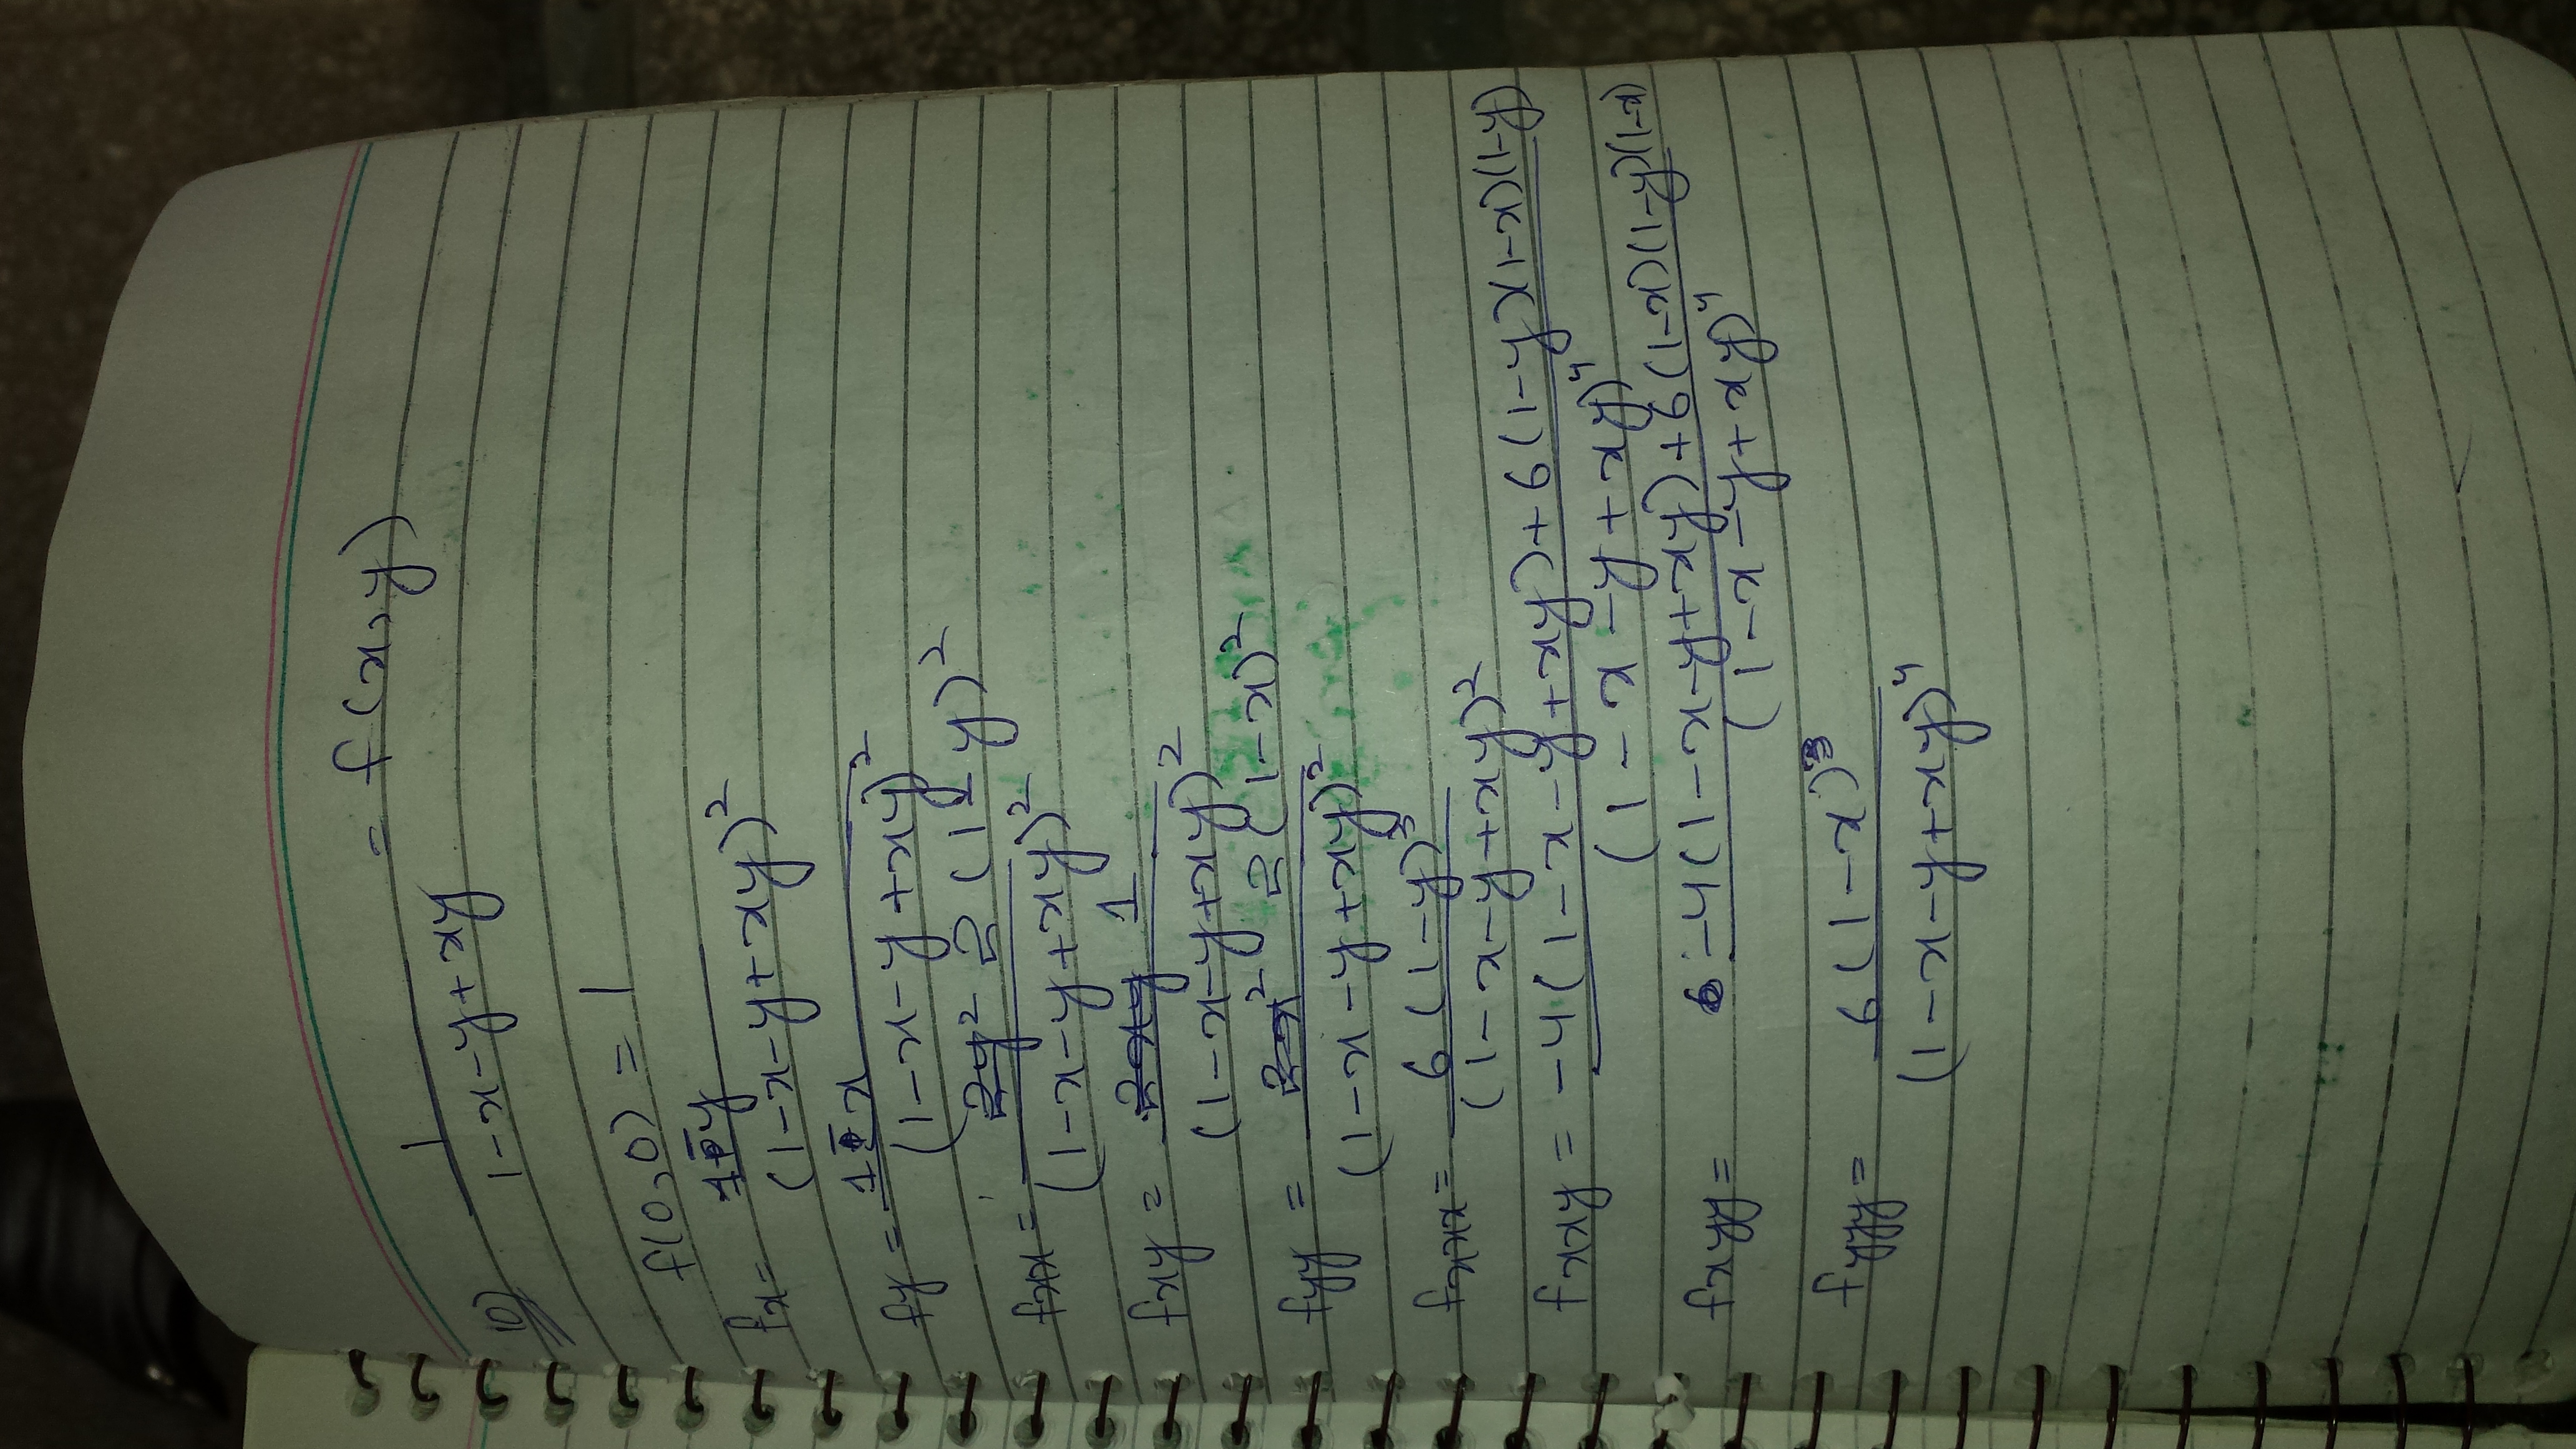 10) 1/(1-x-y+xy) = f(x,y)
f(0,0) = 1
fx = (1-y)/(1-x-y+xy)²
fy = (1-x)/(1-x-y+xy)²
fxx = 2y² 2(1-y)²/(1-x-y+xy)²
fxy = 2xy 1/(1-x-y+xy)²
fyy = 2x² 2(1-x)²/(1-x-y+xy)²
fxxx = 6(1-y)³/(1-x-y+xy)²
fxxy = -4(1-x-y+xy)+6(1-y)(1-x)(1-y)/(1-x-y+xy)⁴
fxyy = -4(1-x-y+xy)+6(1-x)(1-y)(1-x)/(1-x-y+xy)⁴
fyyy = 6(1-x)³/(1-x-y+xy)⁴